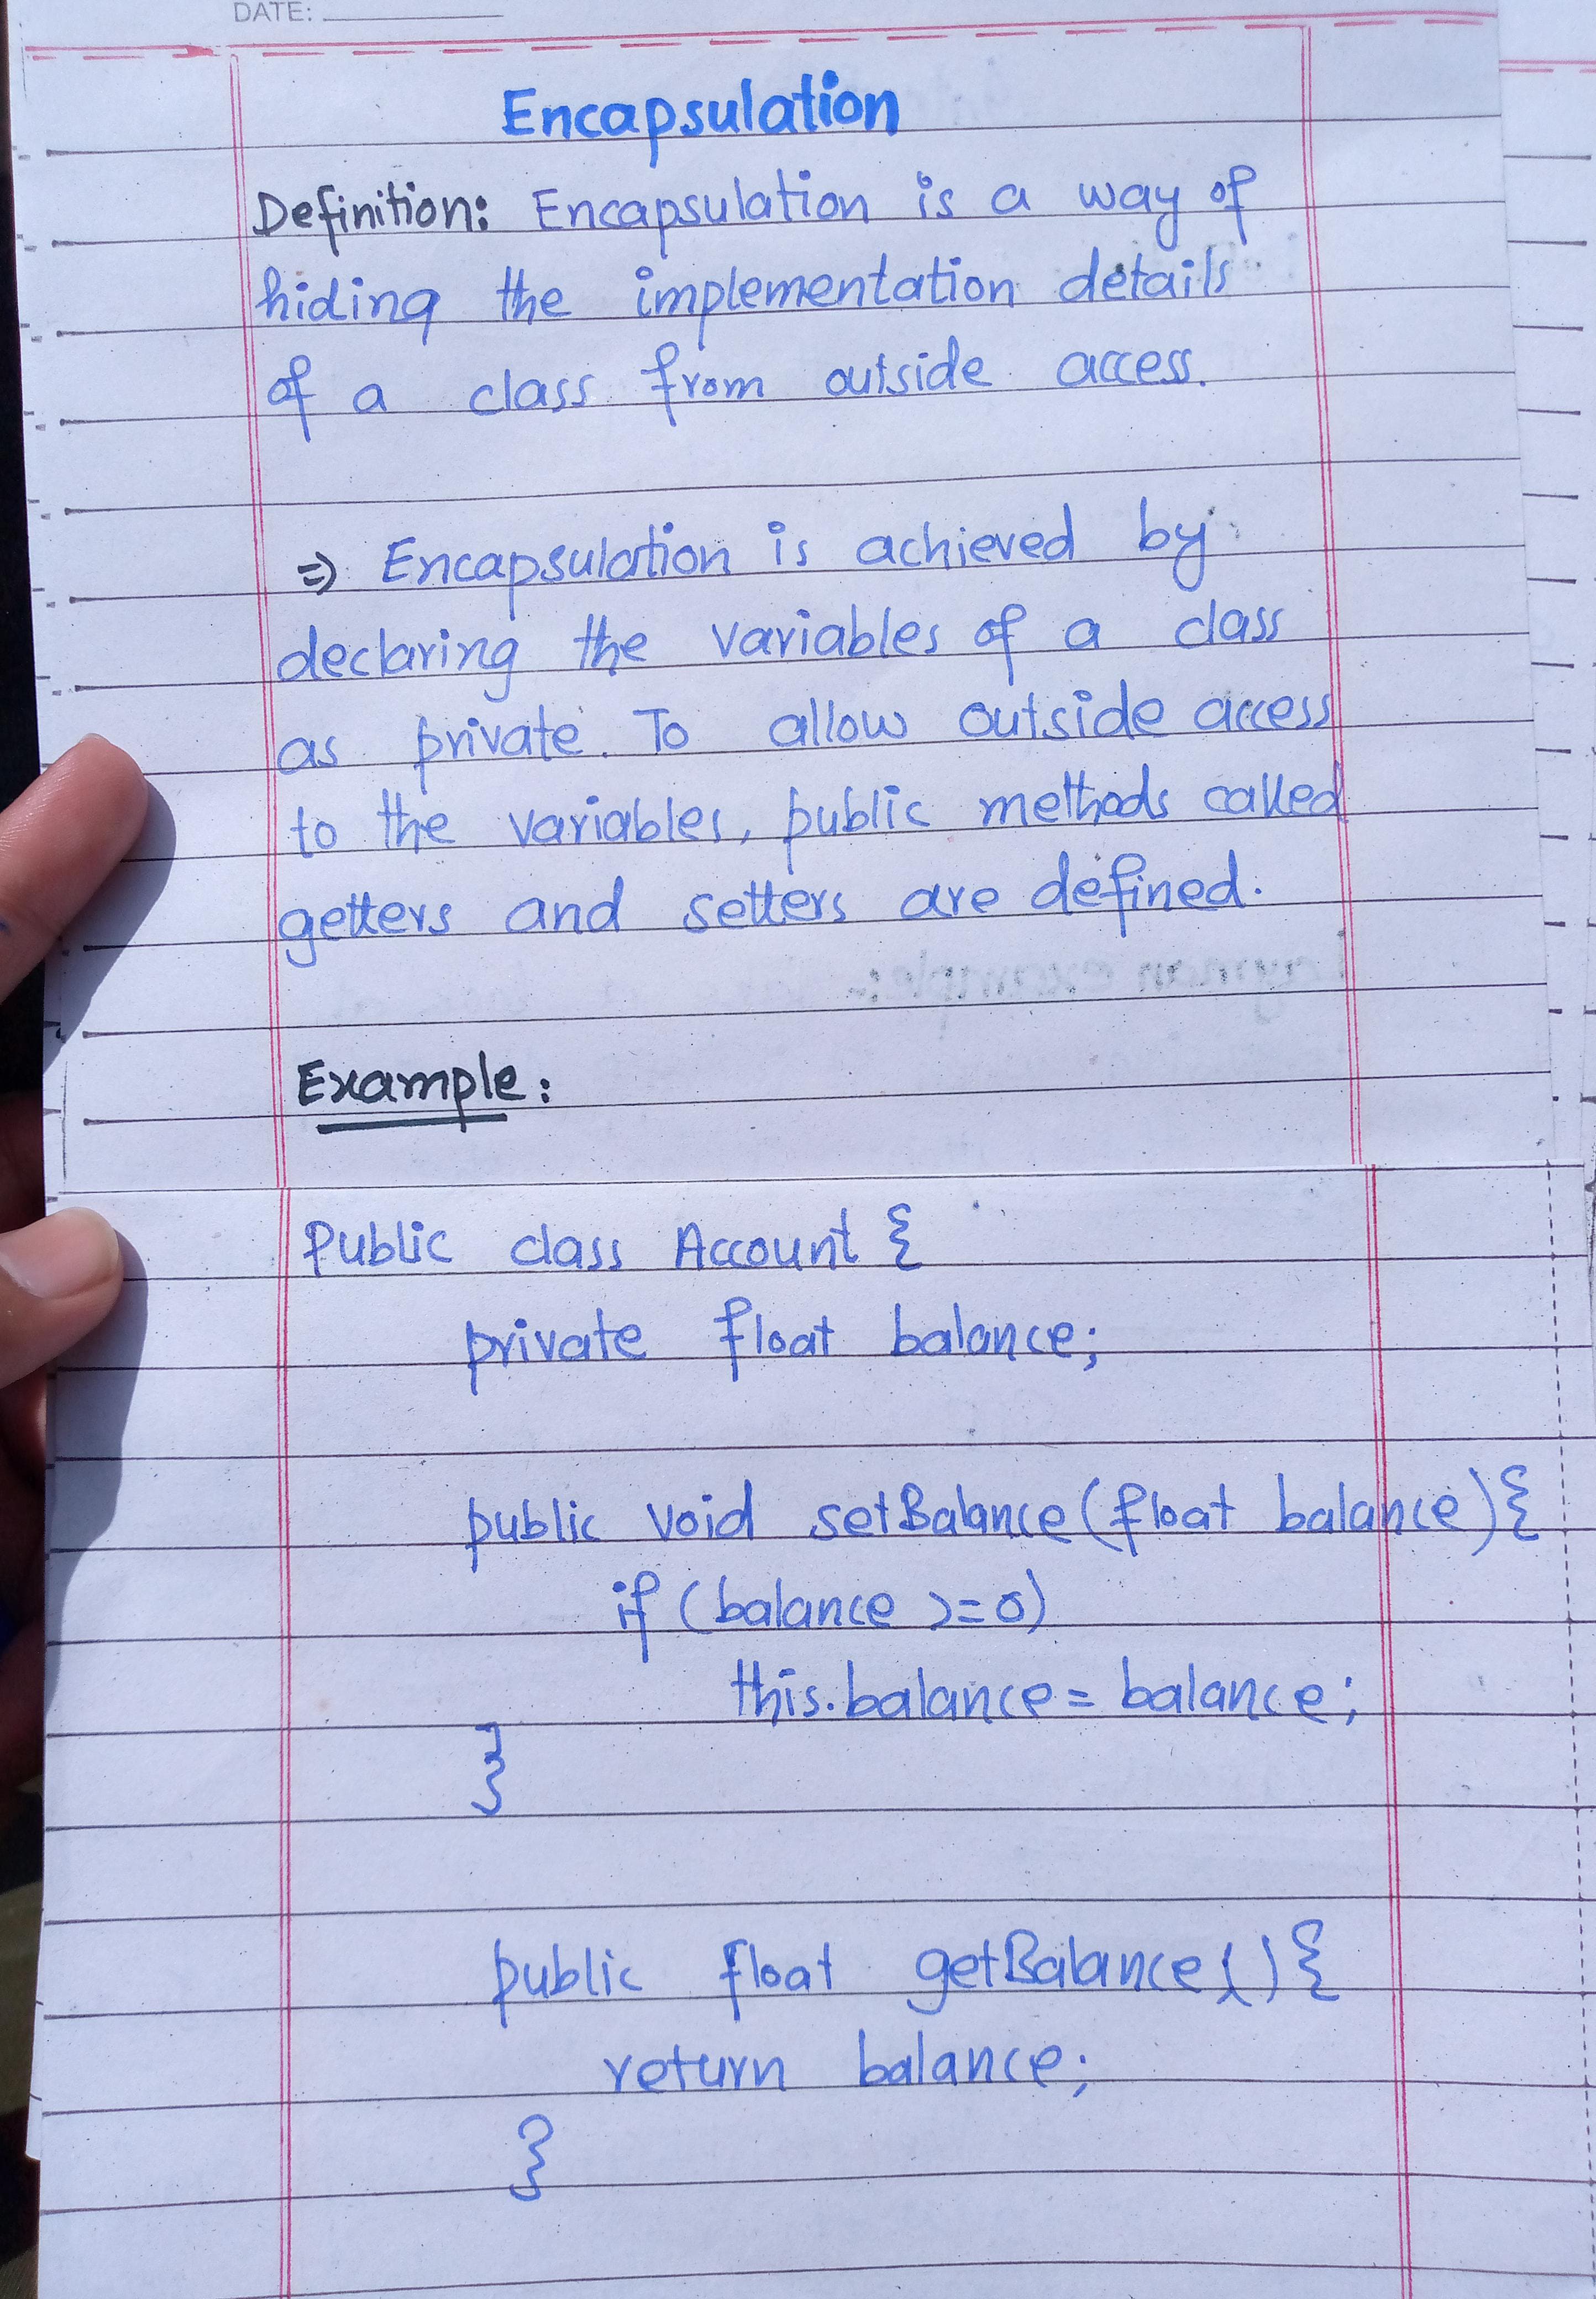 DATE:
Encapsulation
Definition: Encapsulation is a way of
hiding the implementation details
of a class from outside access.
⇒ Encapsulation is achieved by
declaring the variables of a class
as private. To allow outside access
to the variables, public methods called
getters and setters are defined.
Example:
Public class Account {
private float balance;
public void setBalance(float balance){
if (balance >=0)
this.balance= balance;
}
public float getBalance(){
return balance;
}